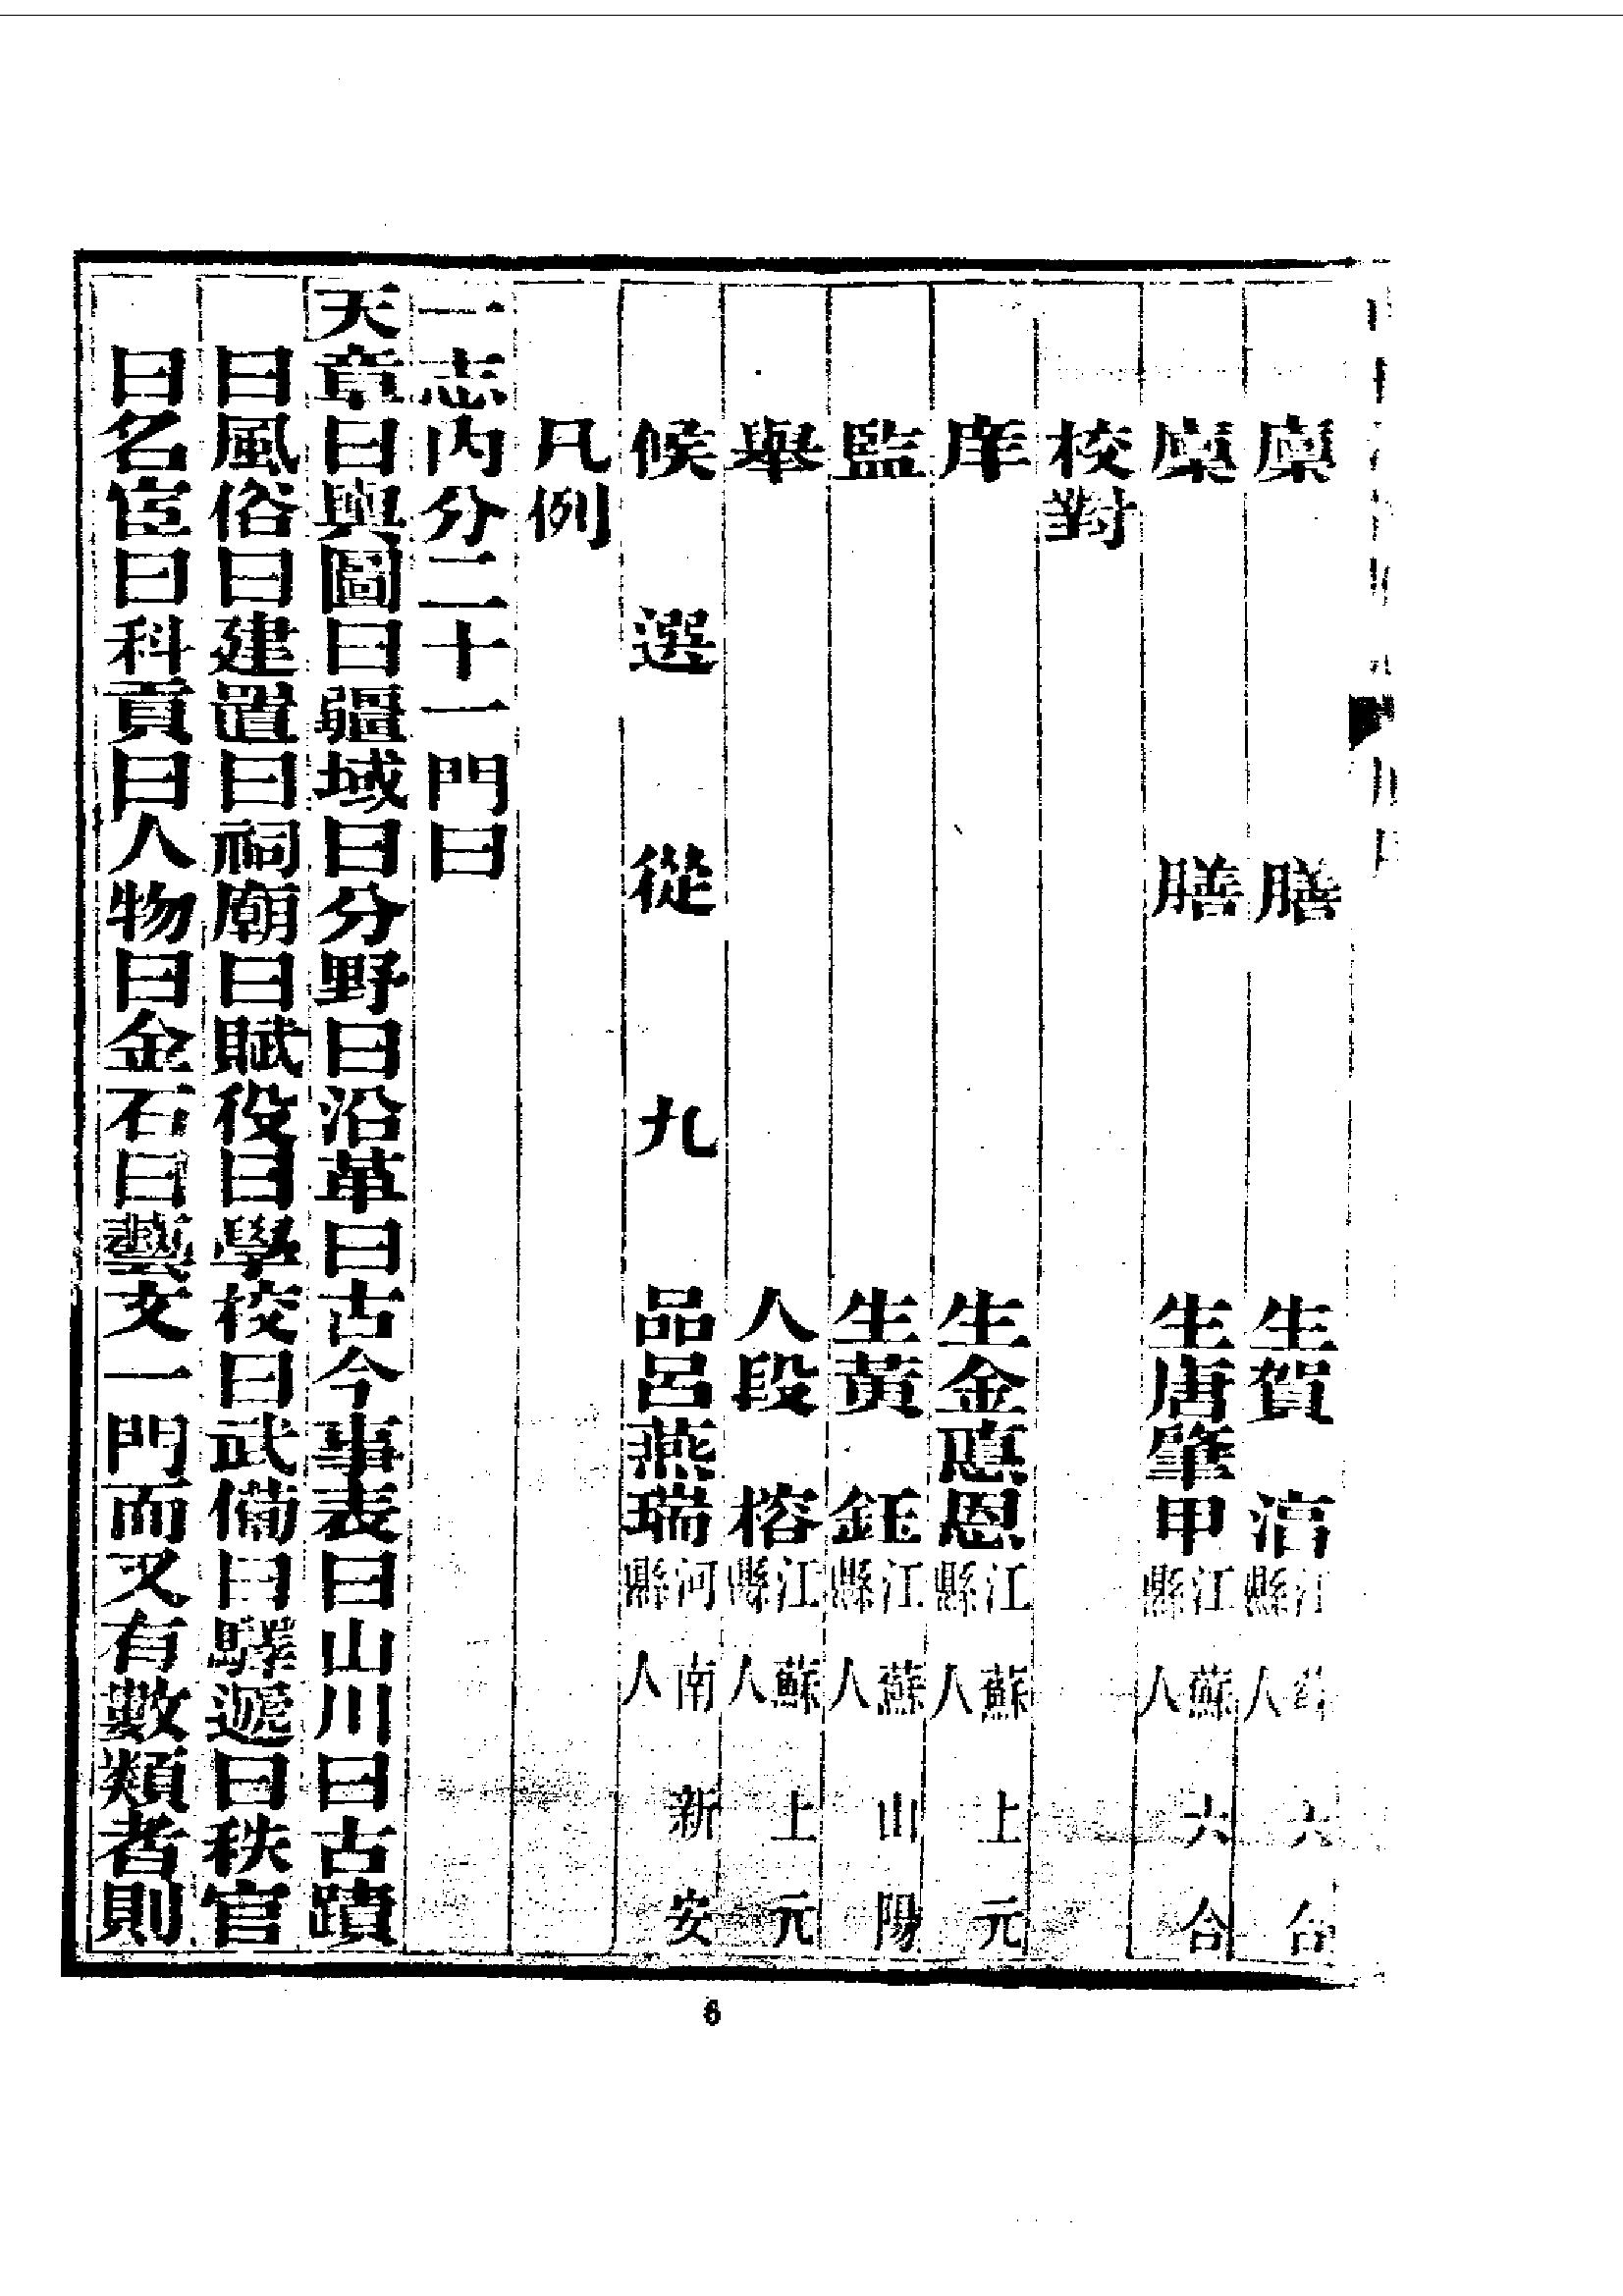 廩膳生賀淯江蘇六合縣人
廩膳生唐肇甲江蘇六合縣人
校對
庠生金應恩江蘇上元縣人
監生黃鈺江蘇山陽縣人
舉人段榕江蘇上元縣人
候選從九品呂燕瑞河南新安縣人
凡例
一志內分二十一門曰
天章曰輿圖曰疆域曰分野曰沿革曰古今事表曰山川曰古蹟
曰風俗曰建置曰祠廟曰賦役曰學校曰武備曰驛遞曰秩官
曰名宦曰科貢曰人物曰金石曰藝文一門而又有數類者則
6